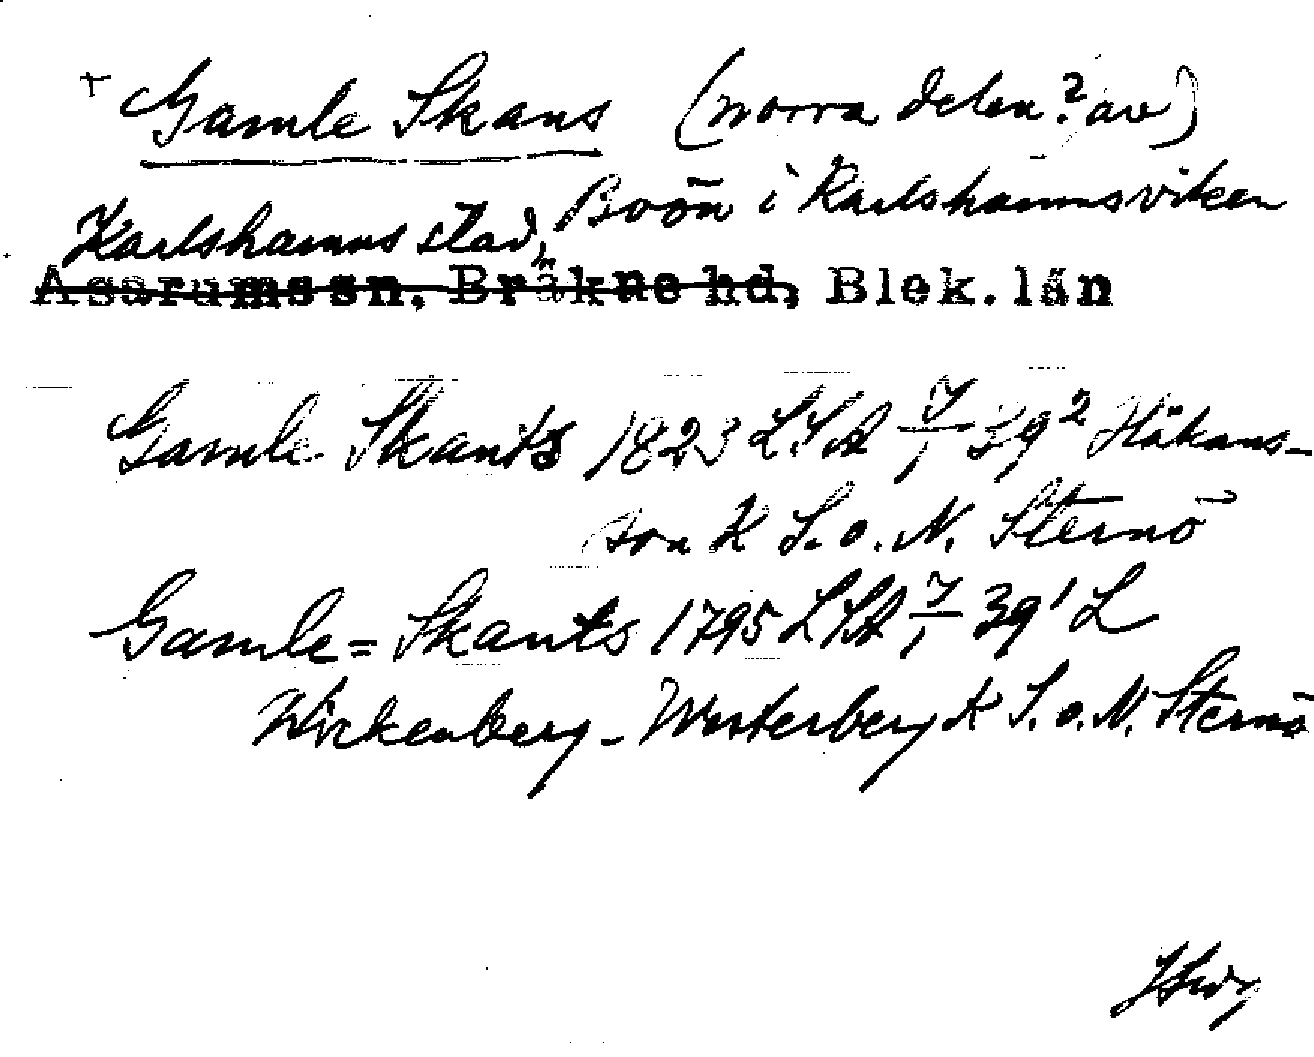 + Gamle Skans (norra delen? av)
Karlshamns stad, Boön i Karlshamnsviken
Asarums sn, Bräkne hd, Blek. län
Gamle Skants 1823 LSA 7/1 39² Håkans-
son K S. o. N. Sternö
Gamle=Skants 1795 LSA 7/1 39¹ L
Wickenberg-Westerberg K S. o. N. Sternö